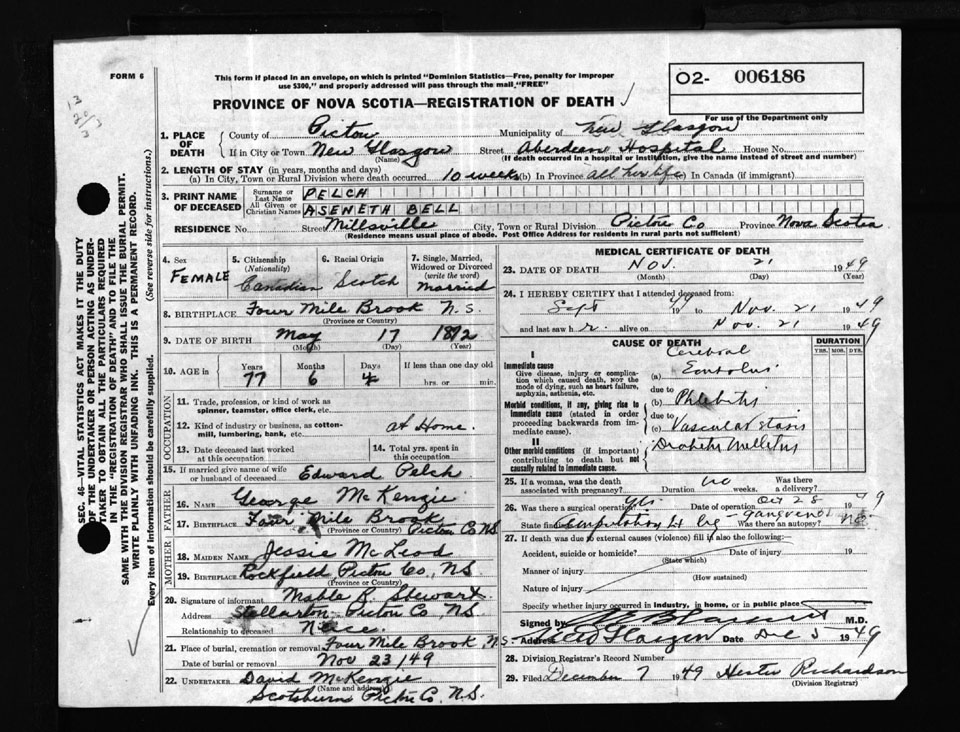 FORM 6
This form if placed in an envelope, on which is printed "Dominion Statistics—Free, penalty for improper use $300," and properly addressed will pass through the mail "FREE"
02- 006186
For use of the Department only
PROVINCE OF NOVA SCOTIA—REGISTRATION OF DEATH
1. PLACE OF DEATH
County of Pictou Municipality of New Glasgow
If in City or Town New Glasgow Street Aberdeen Hospital House No.
(Name) (If death occurred in a hospital or institution, give the name instead of street and number)
2. LENGTH OF STAY (in years, months and days)
(a) In City, Town or Rural Division where death occurred 10 weeks (b) In Province all her life In Canada (if immigrant)
3. PRINT NAME OF DECEASED
Surname or Last Name PELCH
All Given or Christian Names ASENETH BELL
RESIDENCE No. Street Millsville City, Town or Rural Division Pictou Co Province Nova Scotia
(Residence means usual place of abode. Post Office Address for residents in rural parts not sufficient)
4. Sex FEMALE
5. Citizenship (Nationality) Canadian
6. Racial Origin Scotch
7. Single, Married, Widowed or Divorced (write the word) Married
8. BIRTHPLACE Four Mile Brook N.S.
(Province or Country)
9. DATE OF BIRTH May 17 1872
(Month) (Day) (Year)
10. AGE in Years 77 Months 6 Days 4 If less than one day old hrs. or min.
OCCUPATION
11. Trade, profession, or kind of work as spinner, teamster, office clerk, etc.
12. Kind of industry or business, as cotton-mill, lumbering, bank, etc. At Home.
13. Date deceased last worked at this occupation
14. Total yrs. spent in this occupation
15. If married give name of wife or husband of deceased Edward Pelch
FATHER
16. NAME George McKenzie
17. BIRTHPLACE Four Mile Brook Pictou Co N.S.
(Province or Country)
MOTHER
18. MAIDEN NAME Jessie McLeod
19. BIRTHPLACE Rockfield Pictou Co., N.S.
(Province or Country)
20. Signature of informant Mable R. Stewart
Address Stellarton Pictou Co, N.S
Relationship to deceased Niece.
21. Place of burial, cremation or removal Four Mile Brook N.S.
Date of burial or removal Nov 23/49
22. UNDERTAKER David McKenzie
(Name and address)
Scotsburn Pictou Co. N.S.
MEDICAL CERTIFICATE OF DEATH
23. DATE OF DEATH Nov. 21 1949
(Month) (Day) (Year)
24. I HEREBY CERTIFY that I attended deceased from:
Sept 1949 to Nov. 21 1949
and last saw h r. alive on Nov. 21 1949
CAUSE OF DEATH
DURATION
YRS. MOS. DYS.
I
Immediate cause
Give disease, injury or complication which caused death, NOT the mode of dying, such as heart failure, asphyxia, asthenia, etc.
(a) Cerebral Embolus
due to
Morbid conditions, if any, giving rise to immediate cause (stated in order proceeding backwards from immediate cause).
(b) Phlebitis
due to
(c) Vascular stasis
II
Other morbid conditions (if important) contributing to death but not causally related to immediate cause.
Diabetes Mellitus
25. If a woman, was the death associated with pregnancy? no Duration weeks. Was there a delivery?
26. Was there a surgical operation? yes Date of operation Oct 28 1949
State findings Amputation Lt leg - gangrene Was there an autopsy? No
27. If death was due to external causes (violence) fill in also the following:
Accident, suicide or homicide? Date of injury 19
(State which)
Manner of injury
(How sustained)
Nature of injury
Specify whether injury occurred in industry, in home, or in public place
Signed by M.D.
Address New Glasgow Date Dec 5 1949
28. Division Registrar's Record Number
29. Filed December 7 1949 Hester Richardson
(Division Registrar)
SEC. 46—VITAL STATISTICS ACT MAKES IT THE DUTY
OF THE UNDERTAKER OR PERSON ACTING AS UNDERTAKER TO OBTAIN ALL THE PARTICULARS REQUIRED
IN THE "REGISTRATION OF DEATH" AND TO FILE THE
SAME WITH THE DIVISION REGISTRAR WHO SHALL ISSUE THE BURIAL PERMIT.
WRITE PLAINLY WITH UNFADING INK. THIS IS A PERMANENT RECORD.
Every item of information should be carefully supplied. (See reverse side for instructions.)